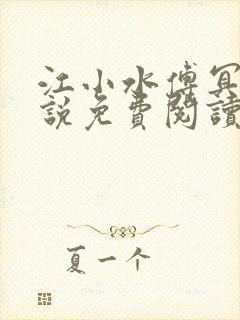 江小水傅冥
說免費閱讀
夏一个